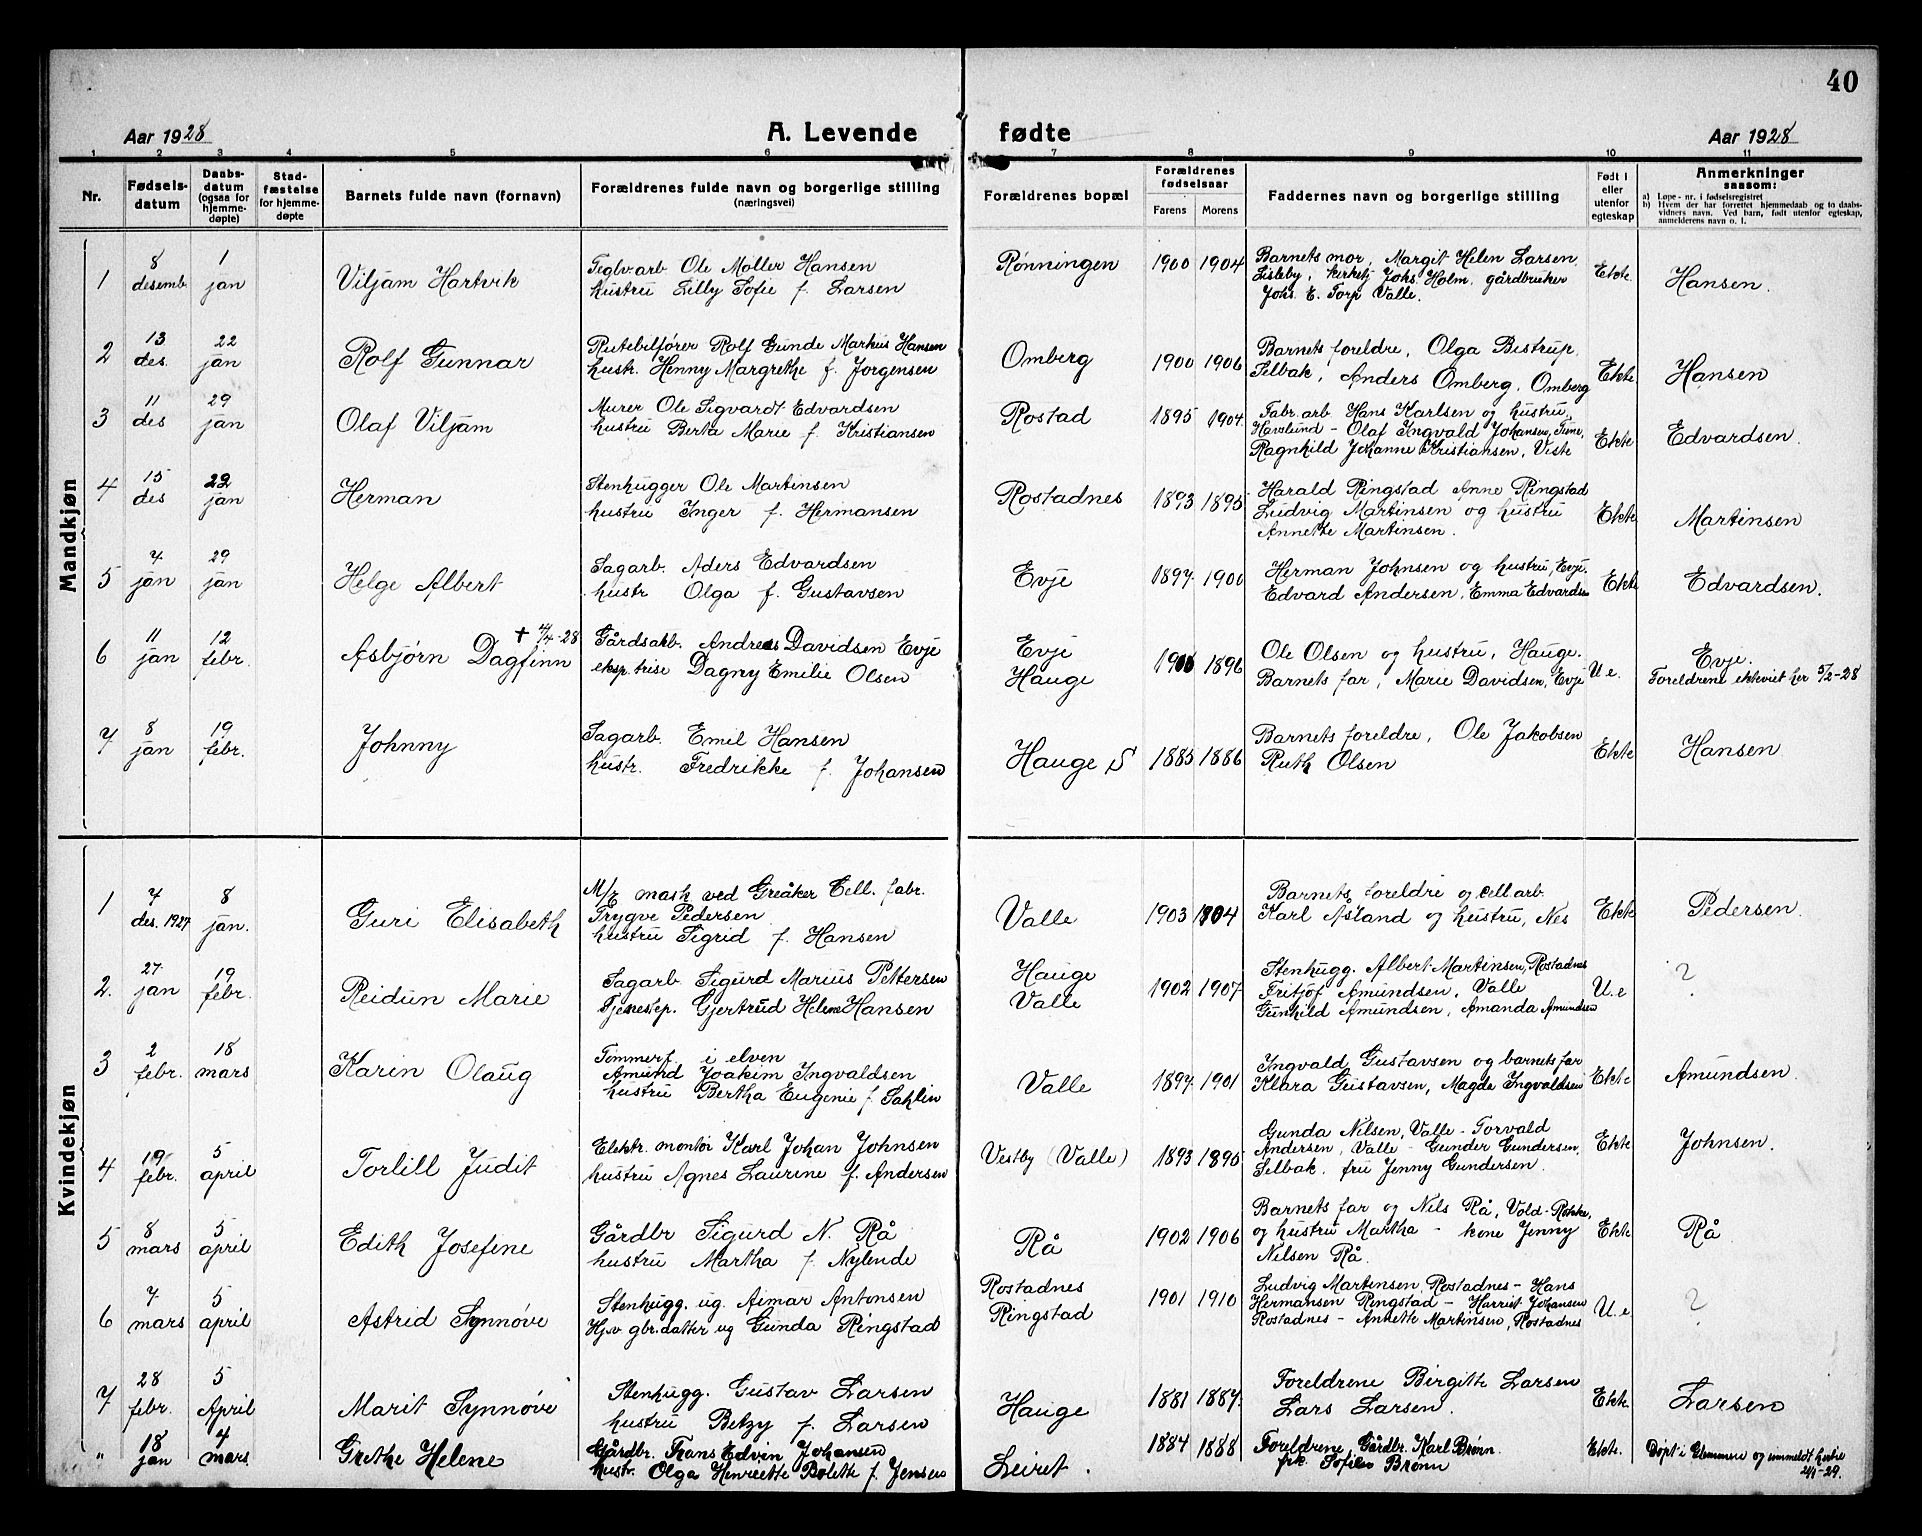 40
Aar 1928
A. Levende fødte
Aar 1928
1 2 3 4 5 6 7 8 9 10 11
Nr.
Fødsels-
datum
Daabs-
datum
(ogsaa for
hjemme-
døpte)
Stad-
fæstelse
for hjemme-
døpte
Barnets fulde navn (fornavn)
Forældrenes fulde navn og borgerlige stilling
(næringsvei)
Forældrenes bopæl
Forældrenes
fødselsaar
Farens Morens
Faddernes navn og borgerlige stilling
Født i
eller
utenfor
egteskap
Anmerkninger
saasom:
a) Løpe-nr. i fødselsregistret
b) Hvem der har forrettet hjemmedaab og to daabs-
vidners navn. Ved barn, født utenfor egteskap,
anmelderens navn o. l.
Mandkjøn
1
8
desemb.
1
jan
Viljam Hartvik
Teglv.arb Ole Moller Hansen
hustru Lilly Sofie f. Larsen
Rønningen
1900 1904
Barnets mor, Margit Helen Larsen,
Lisleby, kirketj Johs. Holm, gårdbruker
Johs. E. Torp Valle.
Ekte
Hansen.
2
13
des.
22
jan
Rolf Gunnar
Rutebilfører Rolf Gunde Markus Hansen
hustr. Henny Margrethe f. Jørgensen
Omberg
1900 1906
Barnets foreldre, Olga Bistrup,
Selbak, Anders Omberg, Omberg
Ekte
Hansen
3
11
des
29
jan
Olaf Viljam
Murer Ole Sigvardt Edvardsen
hustru Berta Marie f. Kristiansen
Rostad
1895 1904
Fabr. arb. Hans Karlsen og hustru,
Havslund - Olaf Ingvald Johansen, Tune,
Ragnhild Johanne Kristiansen, Viste
Ekte
Edvardsen.
4
15
des
jan
Herman
Stenhugger Ole Martinsen
hustru Inger f. Hermansen
Rostadnes
1893 1895
Harald Ringstad Anne Ringstad
Ludvig Martinsen og hustru
Annette Martinsen.
Ekte
Martinsen
5
4
jan
29
jan
Helge Albert
Sagarb. Aders Edvardsen
hustr Olga f. Gustavsen
Evje
1897 1900
Herman Johnsen og hustru, Evje.
Edvard Andersen, Emma Edvardsen
Ekte
Edvardsen.
6
11
jan
12
febr.
Asbjørn Dagfinn
† 4/4-28
Gårdsarb. Andreas Davidsen Evje
eksp.trise Dagny Emilie Olsen
Evje
Hauge
1896
Ole Olsen og hustru, Hauge.
Barnets far, Marie Davidsen, Evje
U e.
Evje.
Foreldrene ekteviet her 5/2-28
7
8
jan
19
febr.
Johnny
Sagarb. Emil Hansen
hustr. Fredrikke f. Johansen
Hauge S
1885 1886
Barnets foreldre, Ole Jakobsen
Ruth Olsen
Ekte
Hansen
Kvindekjøn
1
4
des. 1927
8
jan.
Guri Elisabeth
mask ved Greåker Cell. fabr.
Trygve Pedersen
hustru Sigrid f. Hansen
Valle
1903 1904
Barnets foreldre og cell.arb.
Karl Åsland og hustru, Nes
Ekte
Pedersen.
2.
27
jan
19
febr.
Reidun Marie
Sagarb Sigurd Marius Pettersen
Tjenestep. Gjertrud Helene Hansen
Hauge
Valle
1902 1907
Stenhugg. Albert Martinsen, Rostadnes
Fritjof Amundsen, Valle
Gunhild Amundsen, Amanda Amundsen
U. e
?
3
2
febr.
18
mars
Karin Olaug
Tømmerf. i elven
Amund Joakim Ingvaldsen
hustru Bertha Eugenie f. Sahlin
Valle
1897 1901
Ingvald Gustavsen og barnets far
Klara Gustavsen, Magda Ingvaldsen
Ekte
Amundsen.
4
19
febr.
5
april
Torlill Judit
Elektr. montør Karl Johan Johnsen
hustru Agnes Laurine f. Andersen
Vestby (Valle)
1893 1895
Gunda Nilsen, Valle - Torvald
Andersen, Valle - Gunder Gundersen,
Selbak. fru Jenny Gundersen.
Ekte
Johnsen.
5
8
mars
5
april
Edith Josefine
Gårdbr Sigurd N. Rå
hustru Martha f. Nylende
Rå
1902 1906
Barnets far og Nils Rå, Vold-Rokke,
og hustru Martha - kone Jenny
Nilsen Rå.
Ekte
Rå
6
7
mars
5
april
Astrid Synnøve
Stenhugg. ug. Aimar Antonsen
Hjv gbr.datter ug Gunda Ringstad
Rostadnes
Ringstad
1901 1910
Ludvig Martinsen, Rostadnes - Hans
Hermansen Ringstad - Harriet Johansen
Rostadnes - Annette Martinsen, Rostadnes
U. e
?
7
28
febr.
5
April
Marit Synnøve
Stenhugg. Gustav Larsen
hustru Betzy f. Larsen
Hauge
1881 1887
Foreldrene Birgithe Larsen
Lars Larsen.
Ekte
Larsen
"
18
jan
4
mars
Grethe Helene
Gårdbr. Frans Edvin Johansen
hustr. Olga Henriette Bolette f. Jensen
Leiret.
1884 1888
Foreldrene, Gårdbr. Karl Brønn.
frk. Brønn
Ekte.
Døpt i Glemmen og innmeldt